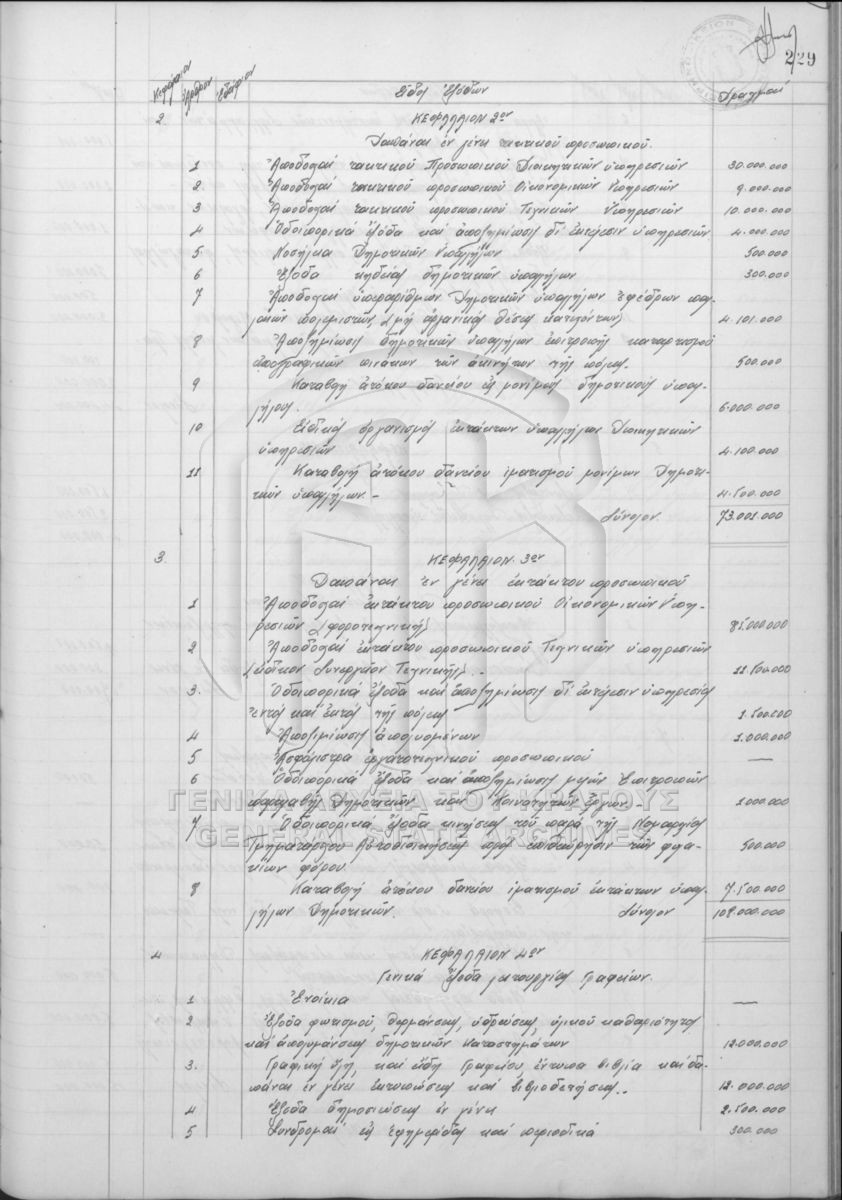 229
Κεφάλαιον Άρθρον Εδάφιον Είδος Εξόδων Δραχμαί
2 ΚΕΦΑΛΑΙΟΝ 2ον
Δαπάναι εν γένει τακτικού προσωπικού.
1 Αποδοχαί τακτικού Προσωπικού Διοικητικών υπηρεσιών 30.000.000
2. Αποδοχαί τακτικού προσωπικού Οικονομικών Υπηρεσιών 9.000.000
3 Αποδοχαί τακτικού προσωπικού Τεχνικών Υπηρεσιών 10.000.000
4 Οδοιπορικά έξοδα και αποζημίωσις δι' εκτέλεσιν υπηρεσιών 4.000.000
5. Νοσήλια Δημοτικών Υπαλλήλων 500.000
6 Έξοδα κηδείας δημοτικών υπαλλήλων 300.000
7 Αποδοχαί υπεραρίθμων Δημοτικών υπαλλήλων εφέδρων πα-
λαιών πολεμιστών (μη οργανικάς θέσεις κατεχόντων) 4.101.000
8 Αποζημίωσις δημοτικών υπαλλήλων επιτροπής καταρτισμού
απογραφικών πινάκων των ακινήτων της πόλεως. 500.000
9 Καταβολή ατόκου δανείου εις μονίμους δημοτικούς υπαλ-
λήλους. 6.000.000
10 Ειδικός οργανισμός εκτάκτων υπαλλήλων Διοικητικών
υπηρεσιών 4.100.000
11 Καταβολή ατόκου δανείου ιματισμού μονίμων Δημοτι-
κών υπαλλήλων.- 4.500.000
Σύνολον 73.001.000
3 ΚΕΦΑΛΑΙΟΝ 3ον
Δαπάναι εν γένει εκτάκτου προσωπικού
1 Αποδοχαί εκτάκτου προσωπικού Οικονομικών Υπη-
ρεσιών (φοροτεχνικής) 85.000.000
2 Αποδοχαί εκτάκτου προσωπικού Τεχνικών υπηρεσιών
(ειδικόν Συνεργείον Τεχνικής).- 11.500.000
3. Οδοιπορικά έξοδα και αποζημίωσις δι' εκτέλεσιν υπηρεσίας
εντός και εκτός της πόλεως 1.500.000
4 Αποζημίωσις απολυομένων 1.000.000
5 Ασφάλιστρα εργατοτεχνικού προσωπικού —
6 Οδοιπορικά έξοδα και αποζημίωσις μελών Επιτροπών
παραλαβής Δημοτικών και Κοινοτικών έργων.- 1.000.000
7 Οδοιπορικά έξοδα κινήσεως του παρά της Νομαρχίας
Τμηματάρχου Αυτοδιοικήσεως προς επιθεώρησιν των
φόρου. 500.000
8 Καταβολή ατόκου δανείου ιματισμού εκτάκτων υπαλ- 7.500.000
λήλων Δημοτικών. Σύνολον 108.000.000
4 ΚΕΦΑΛΑΙΟΝ 4ον
Γενικά έξοδα λειτουργίας Γραφείων.
1 Ενοίκια —
2 Έξοδα φωτισμού, θερμάνσεως, υδρεύσεως, υλικού καθαριότητος
και απολυμάνσεως δημοτικών καταστημάτων 12.000.000
3. Γραφική ύλη, και είδη Γραφείου, έντυπα βιβλία και δα-
πάναι εν γένει εκτυπώσεως και βιβλιοδετήσεως.. 12.000.000
4 Έξοδα δημοσιεύσεως εν γένει 2.500.000
5 Συνδρομαί εις εφημερίδας και περιοδικά 300.000
ΓΕΝΙΚΑ ΑΡΧΕΙΑ ΤΟΥ ΚΡΑΤΟΥΣ
GENERAL STATE ARCHIVES